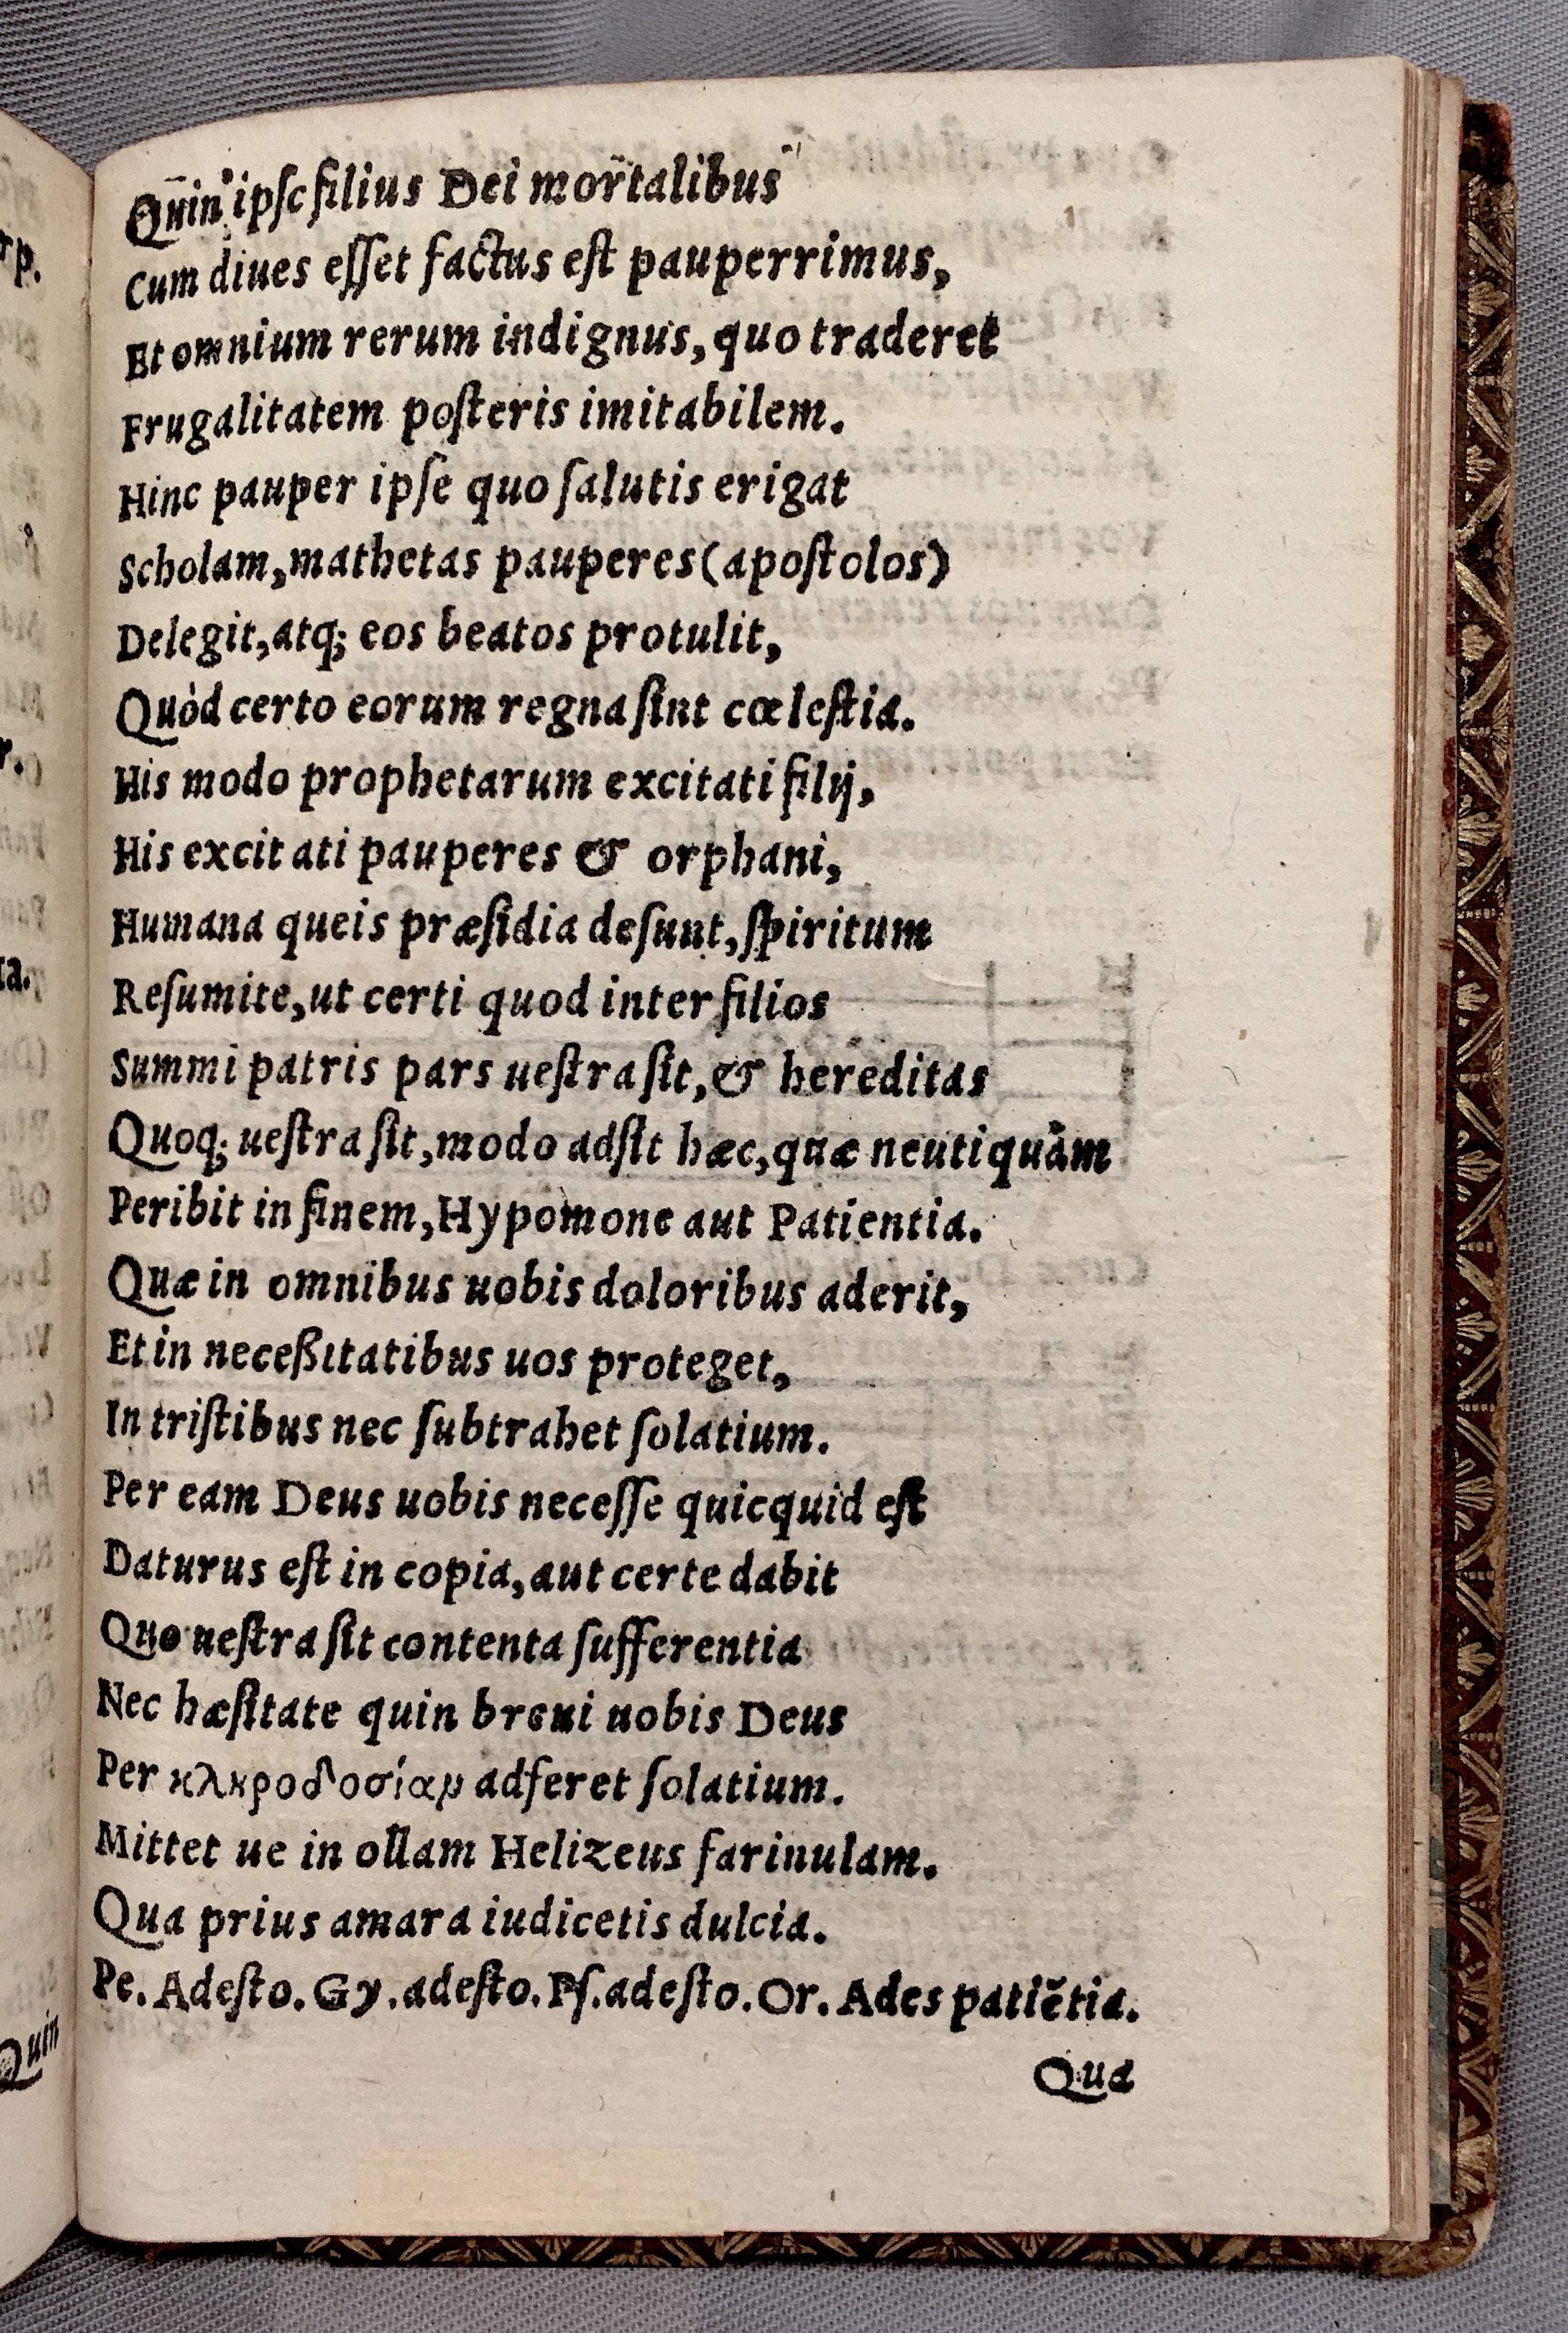 Quin ipſe filius Dei mortalibus
Cum diues eſſet factus eſt pauperrimus,
Et omnium rerum indignus, quo traderet
Frugalitatem poſteris imitabilem.
Hinc pauper ipſe quo ſalutis erigat
Scholam, mathetas pauperes (apoſtolos)
Delegit, atq; eos beatos protulit,
Quòd certo eorum regna ſint cœleſtia.
His modo prophetarum excitati filij,
His excitati pauperes & orphani,
Humana queis præſidia deſunt, ſpiritum
Reſumite, ut certi quod inter filios
Summi patris pars ueſtra ſit, & hereditas
Quoq; ueſtra ſit, modo adſit hæc, quæ neutiquàm
Peribit in finem, Hypomone aut Patientia.
Quæ in omnibus uobis doloribus aderit,
Et in neceßitatibus uos proteget,
In triſtibus nec ſubtrahet ſolatium.
Per eam Deus uobis neceſſe quicquid eſt
Daturus eſt in copia, aut certe dabit
Quo ueſtra ſit contenta ſufferentia
Nec hæſitate quin breui uobis Deus
Per κληροδοσίαν adferet ſolatium.
Mittet ue in ollam Helizeus farinulam.
Qua prius amara iudicetis dulcia.
Pe. Adeſto. Gy. adeſto. Pſ. adeſto. Or. Ades patiẽtia.
Qua
rp.
r.
ta.
Quin